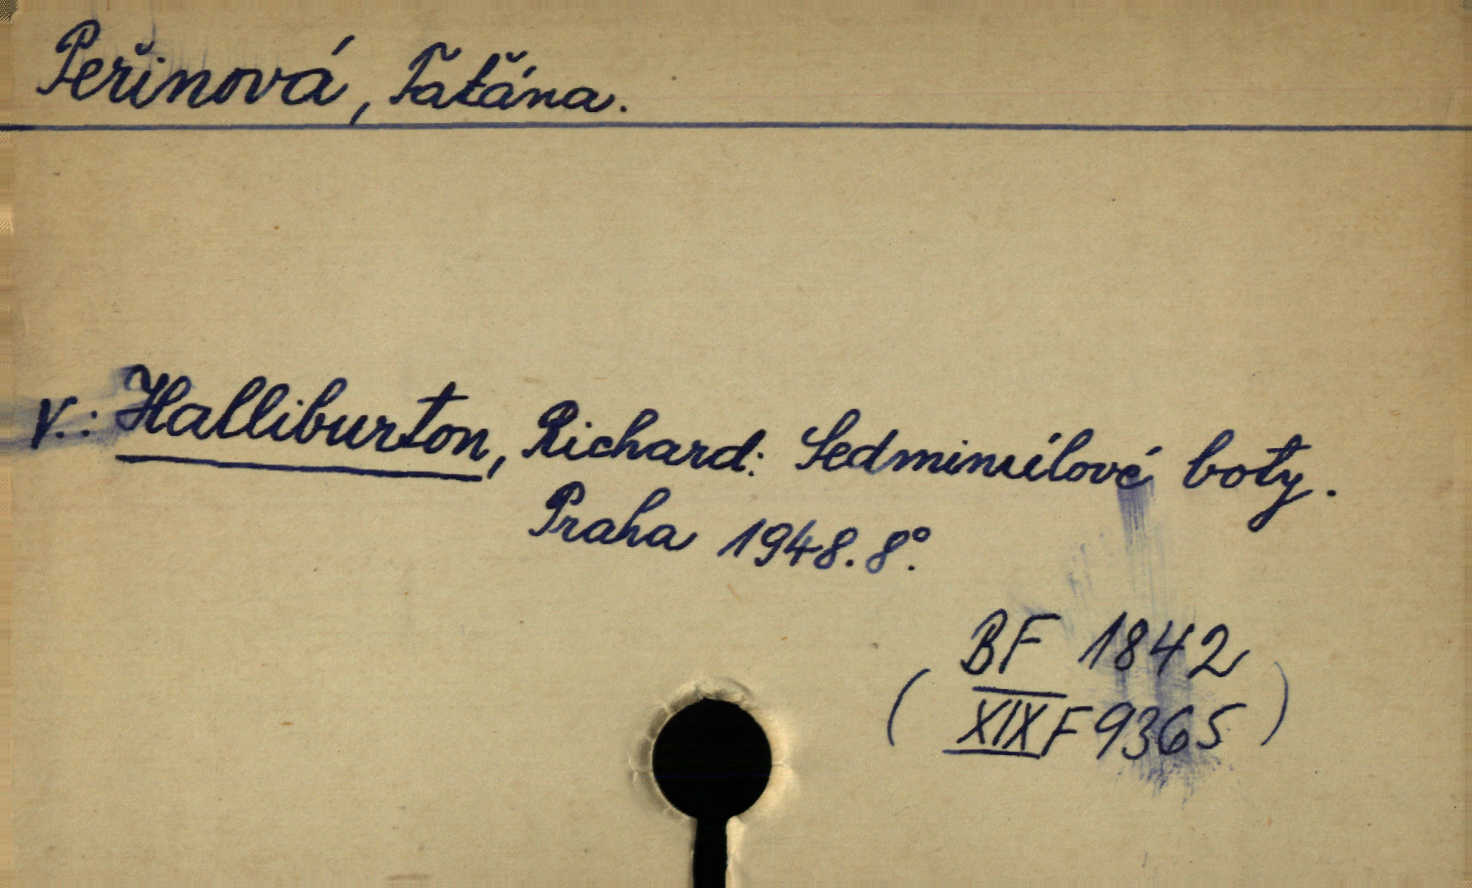 Peřinová, Taťána.
V.: Halliburton, Richard: Sedmimílové boty.
Praha 1948. 8°.
BF 1842
( XIX F 9365 )